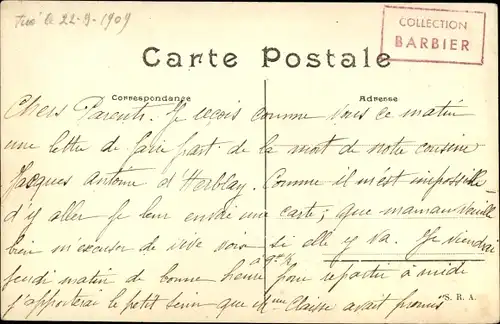 Tué le 22-9-1909
COLLECTION
BARBIER
Carte Postale
Correspondance
Adresse
Chers Parents. Je reçois comme vous ce matin
une lettre de faire part de la mort de notre cousine
Jacques Antoine d'Herblay. Comme il m'est impossible
d'y aller je leur envoie une carte; que maman veuille
bien m'excuser de vive voix si elle y va. Je viendrai
jeudi matin de bonne heure à 9h ½ pour repartir à midi
j'apporterai le petit que Mme Claisse avait promis
S. R. A.